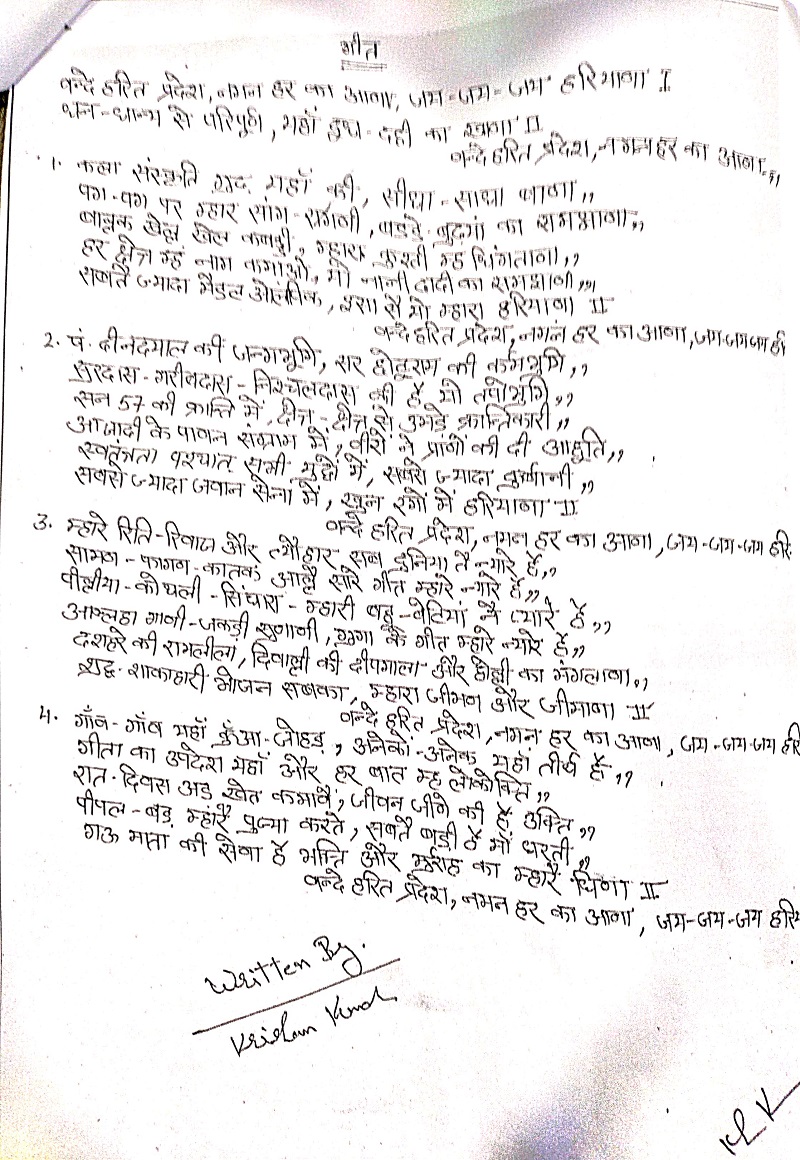 गीत
वन्दे हरित प्रदेश, नमन हर का आणा, जय-जय-जय हरियाणा I
धन-धान्य से परिपूर्ण, यहाँ दुध-दही का खाणा II
वन्दे हरित प्रदेश, नमन हर का आणा-,,
1. कला संस्कृति शुद्ध यहाँ की, सीधा-साधा बाणा,,
पग-पग पर म्हार सांग-रागणी, बड्डे-बुढयां का समझाणा,,
बालक खेलै खेल कबड्डी, म्हारा कुश्ती म्ह धिंगताना,,
हर क्षेत्र म्हं नाम कमाओ, यो नानी दादी का समझाणा,,
सबतै ज्यादा मैडल ओलंपिक, इसा सै यो म्हारा हरियाणा II
वन्दे हरित प्रदेश, नमन हर का आणा, जय-जय-जय हरि
2. पं. दीनदयाल की जन्मभूमि, सर छोटूराम की कर्मभूमि,,
सुरदास-गरीबदास-निश्चलदास की है यो तपोभूमि,,
सन 57 की क्रान्ति में, क्षेत्र-क्षेत्र से उमडे क्रान्तिकारी,,
आजादी के पावन संग्राम में, वीरों ने प्राणों की दी आहुति,,
स्वतंत्रता पश्चात सभी युद्धों में, सबसे ज्यादा कुर्बानी,,
सबसे ज्यादा जवान सेना में, खुन रगों में हरियाणा II
वन्दे हरित प्रदेश, नमन हर का आणा, जय-जय-जय हरि
3. म्हारे रिति-रिवाज और त्यौहार सब दुनिया तै न्यारे है,,
सामण-फागण-कातक आल्ले सारे गीत म्हारे न्यारे है,,
पीलीया-कोथली-सिंधारा-म्हारी बहू-बेटियां नै प्यारे है,,
आल्हा गाणी-जकड़ी सुणाणी, गुगा के गीत म्हारे न्यारे है,,
दशहरे की रामलीला, दिवाली की दीपमाला और होली का मंगलाणा,,
शुद्ध शाकाहारी भोजन सबका, म्हारा जीमण और जीमाणा II
वन्दे हरित प्रदेश, नमन हर का आणा, जय-जय-जय हरि
4. गाँव-गाँव यहाँ कुँआ-जोहड़, अनेको-अनेक यहाँ तीर्थ है,,
गीता का उपदेश यहाँ और हर बात म्ह लोकोक्ति,,
रात-दिवस अड़ खेत कमावै, जीवन जीने की है उक्ति,,
पीपल-बड़ म्हारै पुज्या करते, सबतै बड़ी है माँ धरती,,
गऊ माता की सेवा है भक्ति और का म्हारै धिणा II
वन्दे हरित प्रदेश, नमन हर का आणा, जय-जय-जय हरि
Written By.
Krishan